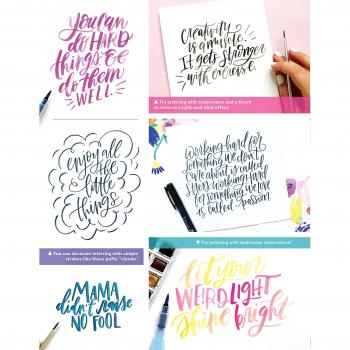 you can
do HARD
things & do
them
WELL
Creativity
is a muscle.
It gets stronger
with exercise.
▲ Try lettering with watercolors and a brush
to achieve a light-and-dark effect.
enjoy all
the
little
things
▲ You can decorate lettering with simple
strokes like these puffy "clouds."
Working hard for
something we don't
care about is called
stress; working hard
for something we love
is called passion.
▼ Try lettering with multicolor watercolors!
MAMA
didn't raise
NO FOOL
let your
WEIRD LIGHT
shine bright